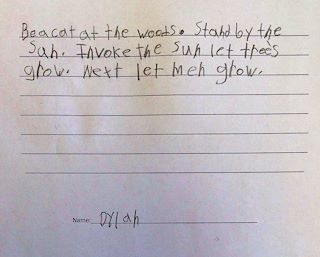 Beacat at the woods. Stand by the
Sun. Invoke the sun let trees
grow. Next let men grow.
Name: Dylan